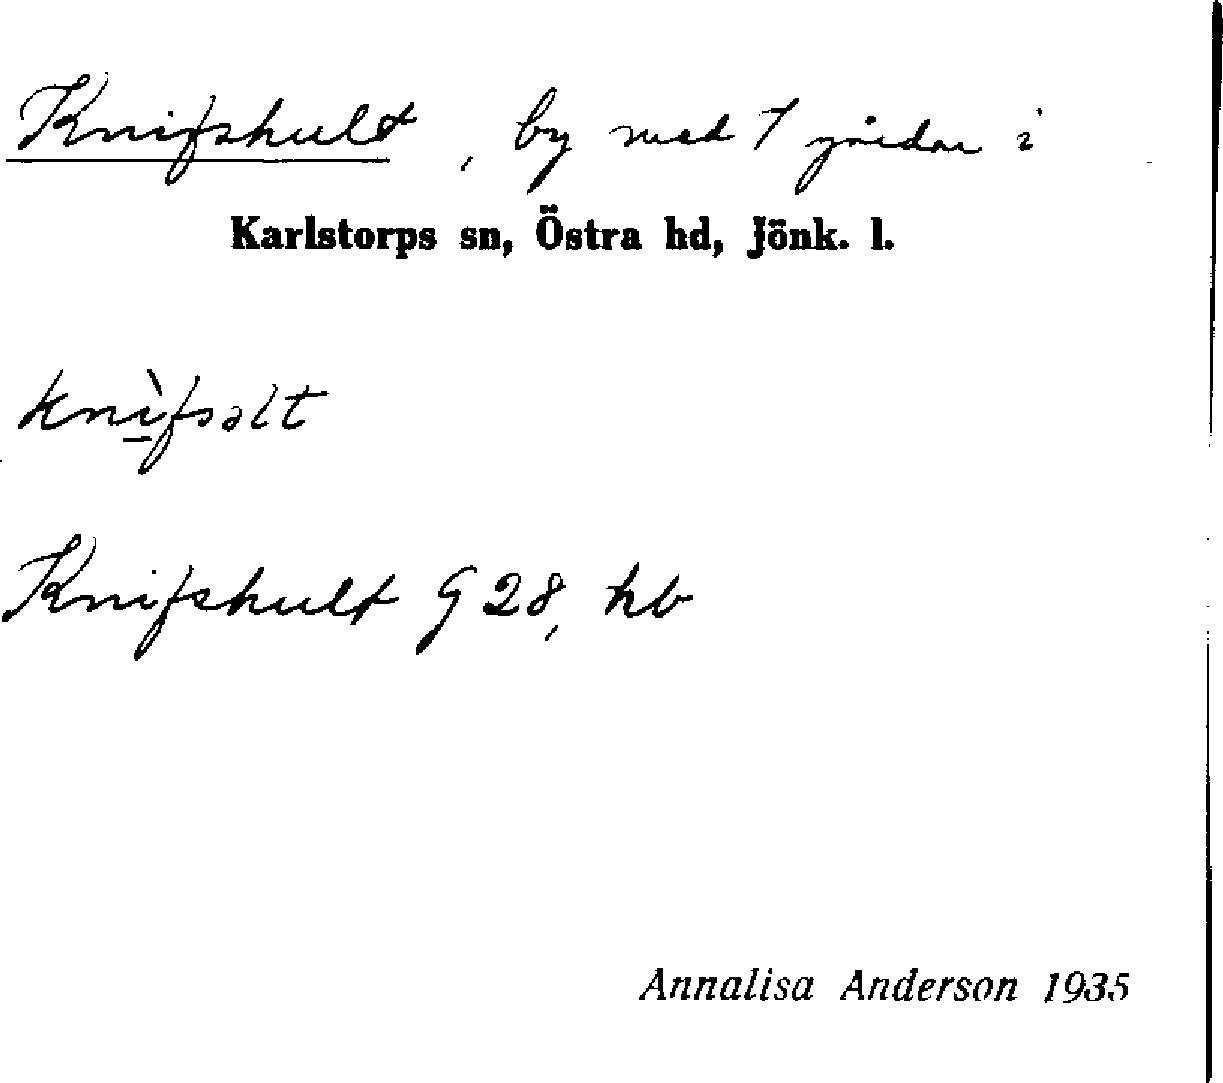 Knifshult, by med 7 gårdar i
Karlstorps sn, Östra hd, Jönk. l.
knìfsəlt
Knifshult G 28, hb
Annalisa Anderson 1935